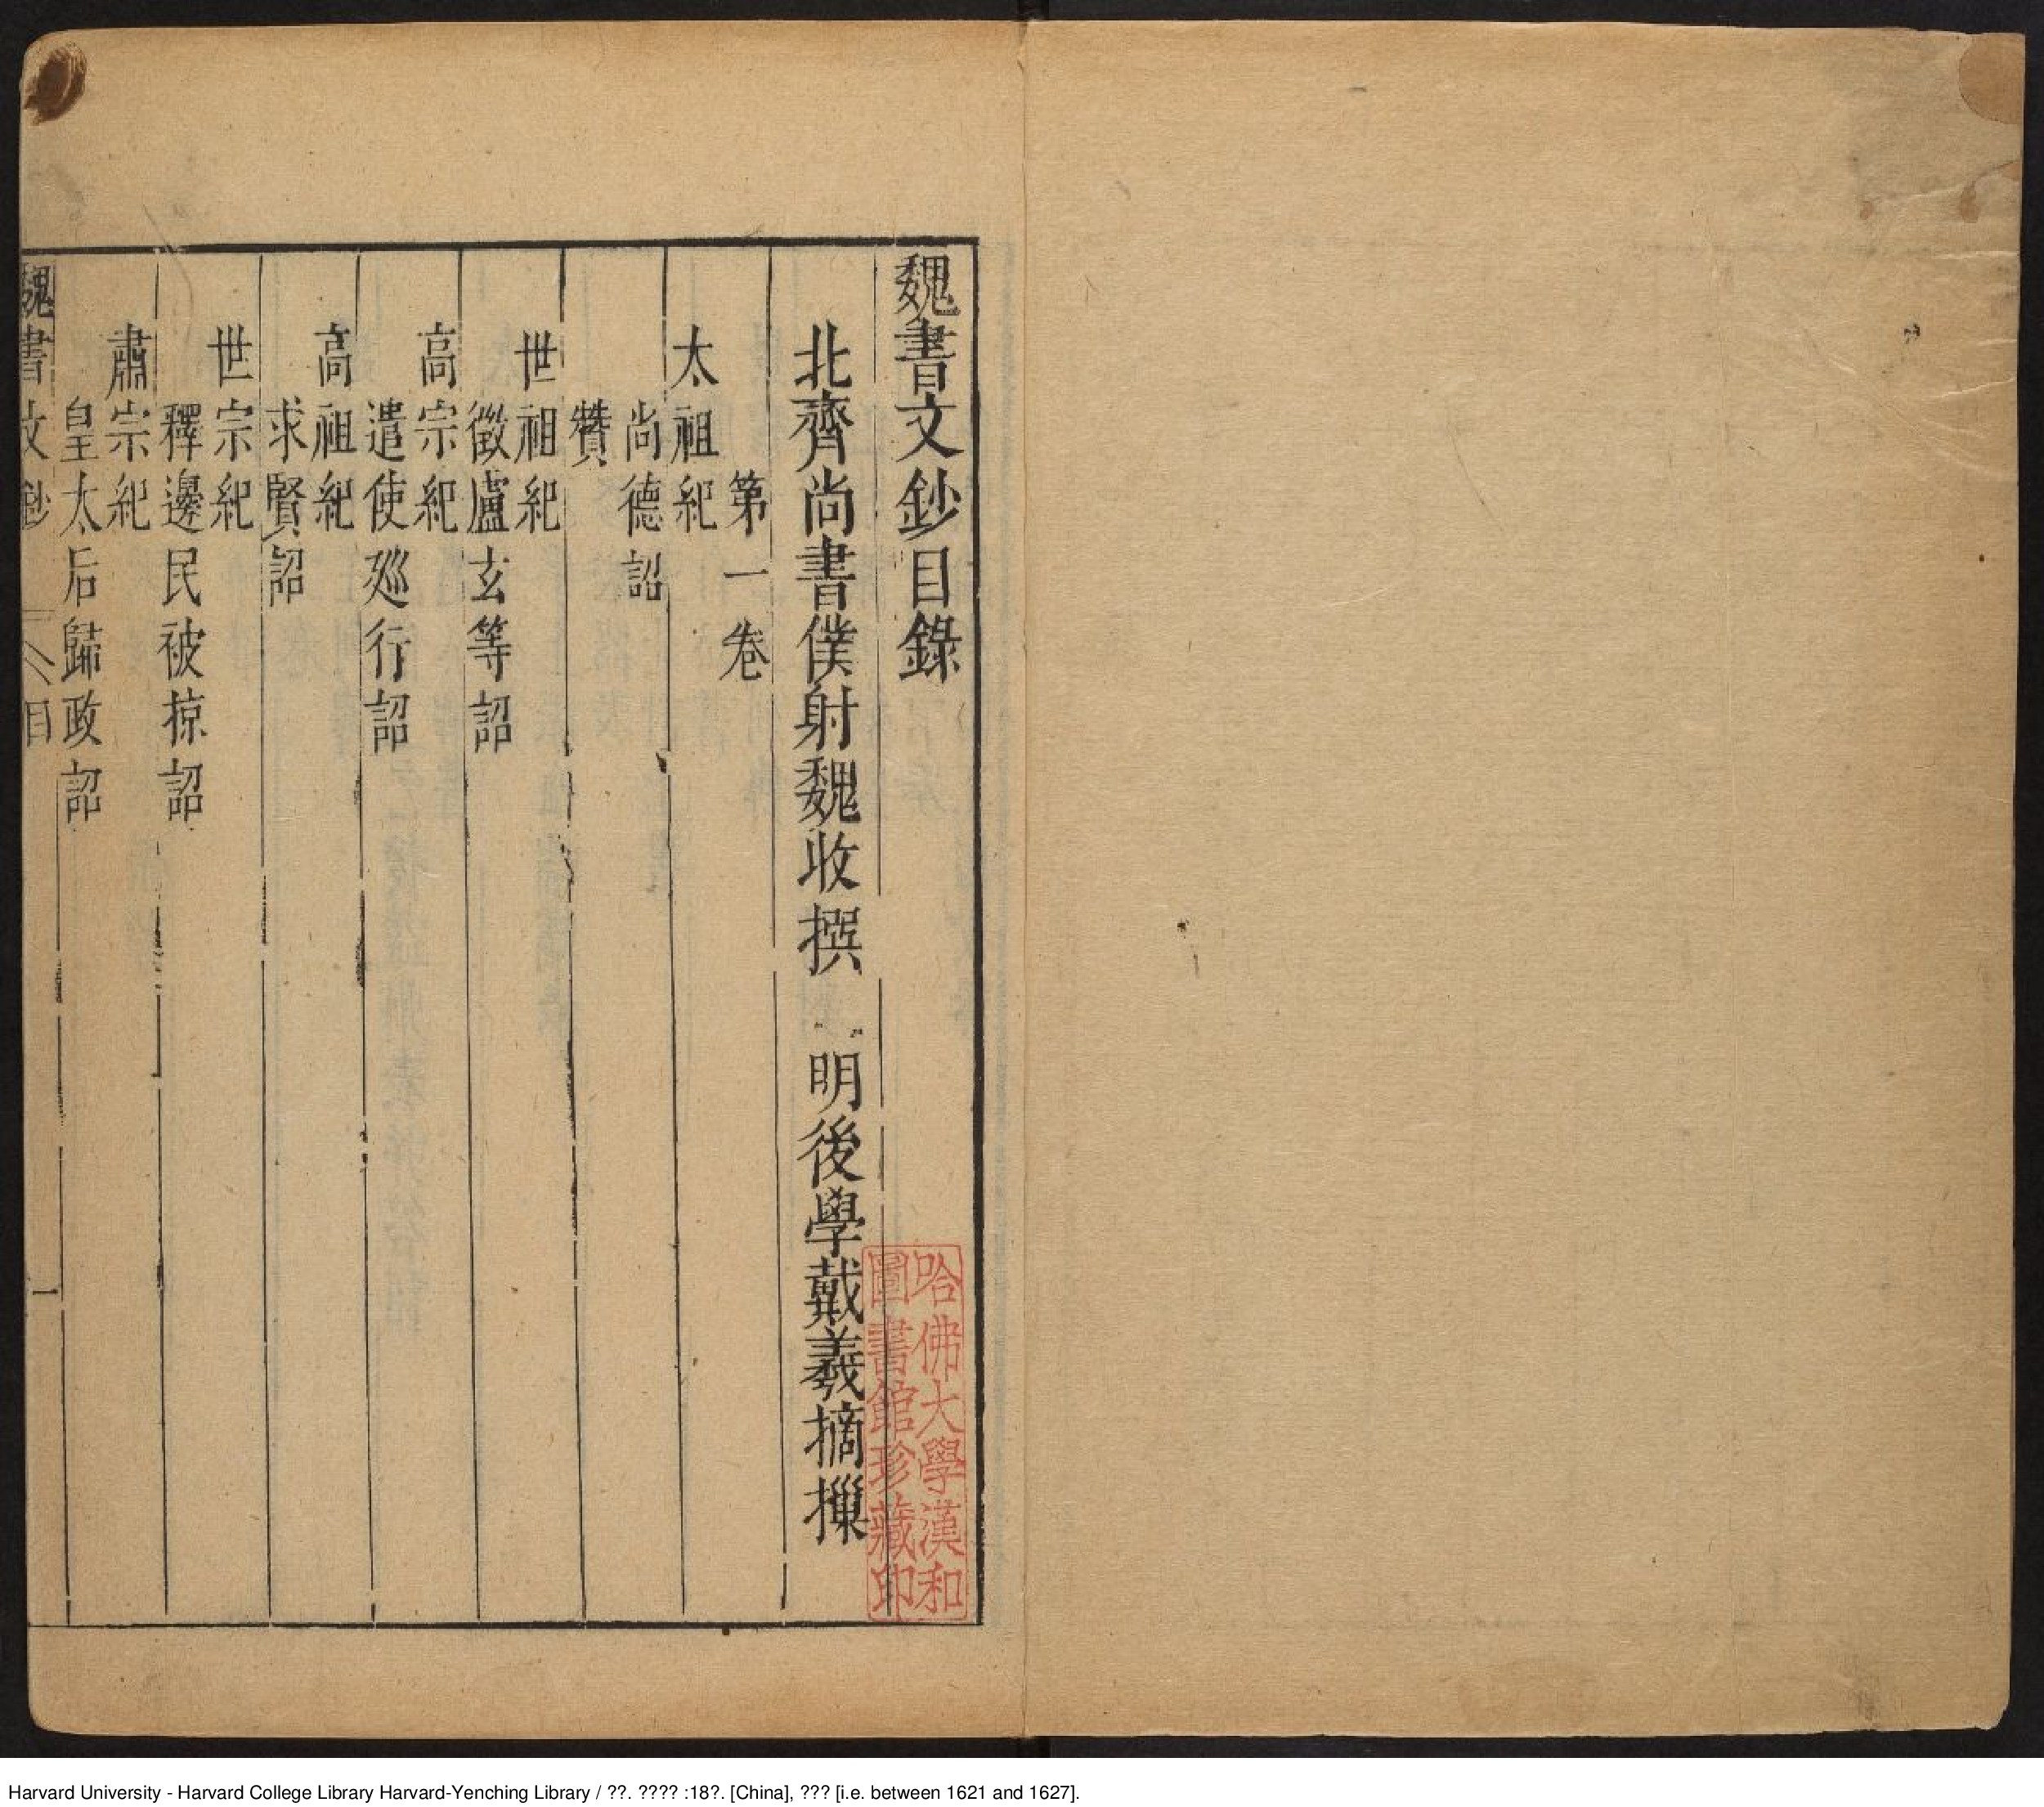 魏書文鈔目錄
北齊尚書僕射魏收撰 明後學戴羲摘㩇
第一卷
太祖紀
尚德詔
贊
世祖紀
徵盧玄等詔
高宗紀
遣使廵行詔
高祖紀
求賢詔
世宗紀
釋邊民被掠詔
肅宗紀
皇太后歸政詔
魏書文鈔 目 一
哈佛大學漢和
圖書館珍藏印
Harvard University - Harvard College Library Harvard-Yenching Library / ??. ???? :18?. [China], ??? [i.e. between 1621 and 1627].